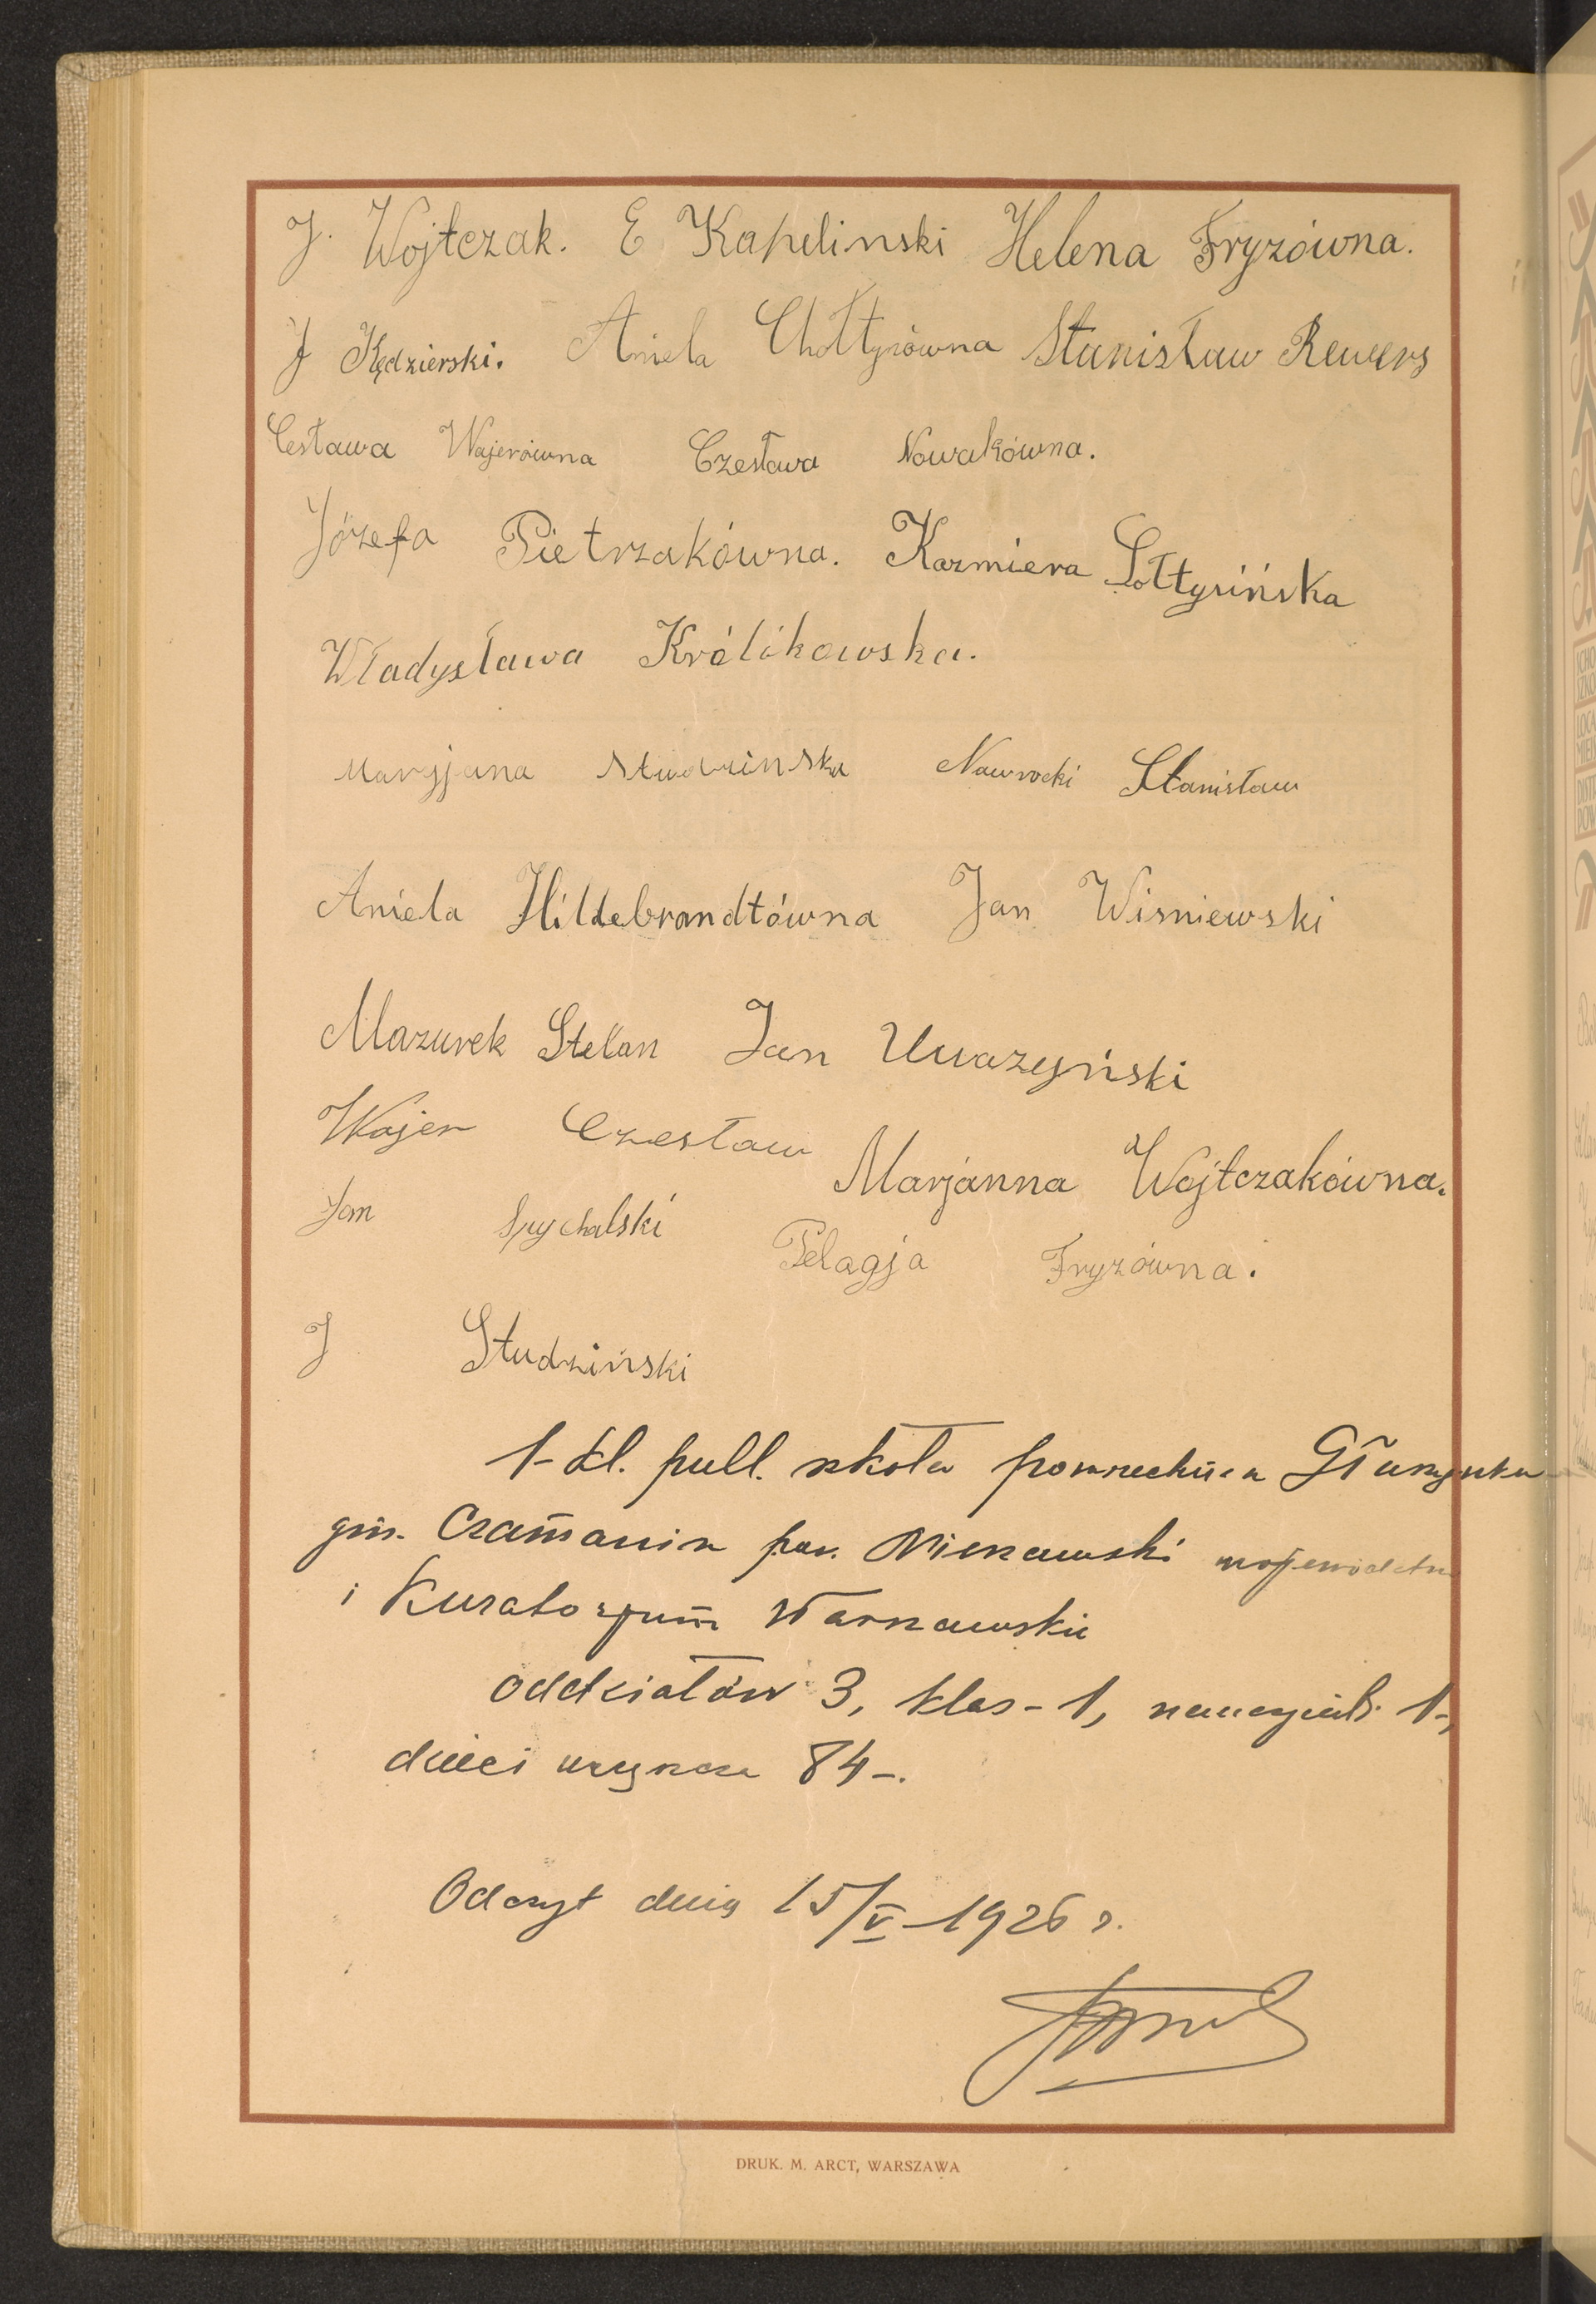 J. Wojtczak. E. Kapelinski Helena Fryzówna.
J Kędzierski. Aniela Chołtysówna Stanisław Rewers
Cesława Wajerówna Czesława Nowakówna.
Józefa Pietrzakówna. Kazmiera Sołtysińska
Władysława Królikowska.
Maryjana Studzinska Nawrocki Stanisław
Aniela Hildebrandtówna Jan Wisniewski
Mazurek Stefan Jan Uwazyński
Wajer Czesław Marjanna Wojtczakówna.
Jan Spychalski Pelagja Fryzówna.
J Studziński
1-kl. publ. szkoła powszechna Głuszynka
gm. Czamanin pow. Nieszawski województwo
i Kuratorjum Warszawskie
oddziałów 3, klas - 1, nauczycieli 1-,
dzieci uczęszcza 84-.
Odczyt dnia 15/V-1926 r.
DRUK. M. ARCT, WARSZAWA